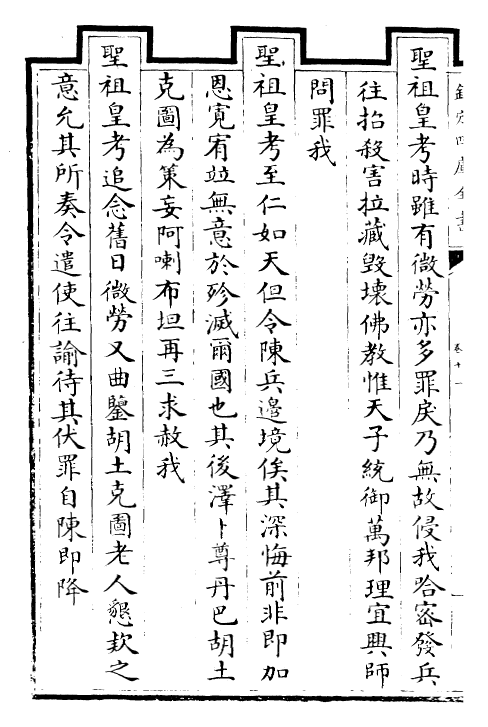 欽定四庫全書
卷十一
聖祖皇考時雖有微勞亦多罪戾乃無故侵我哈密發兵
往招殺害拉藏毀壞佛教惟天子統御萬邦理宜興師
問罪我
聖祖皇考至仁如天但令陳兵邉境俟其深悔前非即加
恩寛宥竝無意於殄滅爾國也其後澤卜尊丹巴胡土
克圖為策妄阿喇布坦再三求赦我
聖祖皇考追念舊日微勞又曲鑒胡土克圖老人懇欵之
意允其所奏令遣使往諭待其伏罪自陳即降